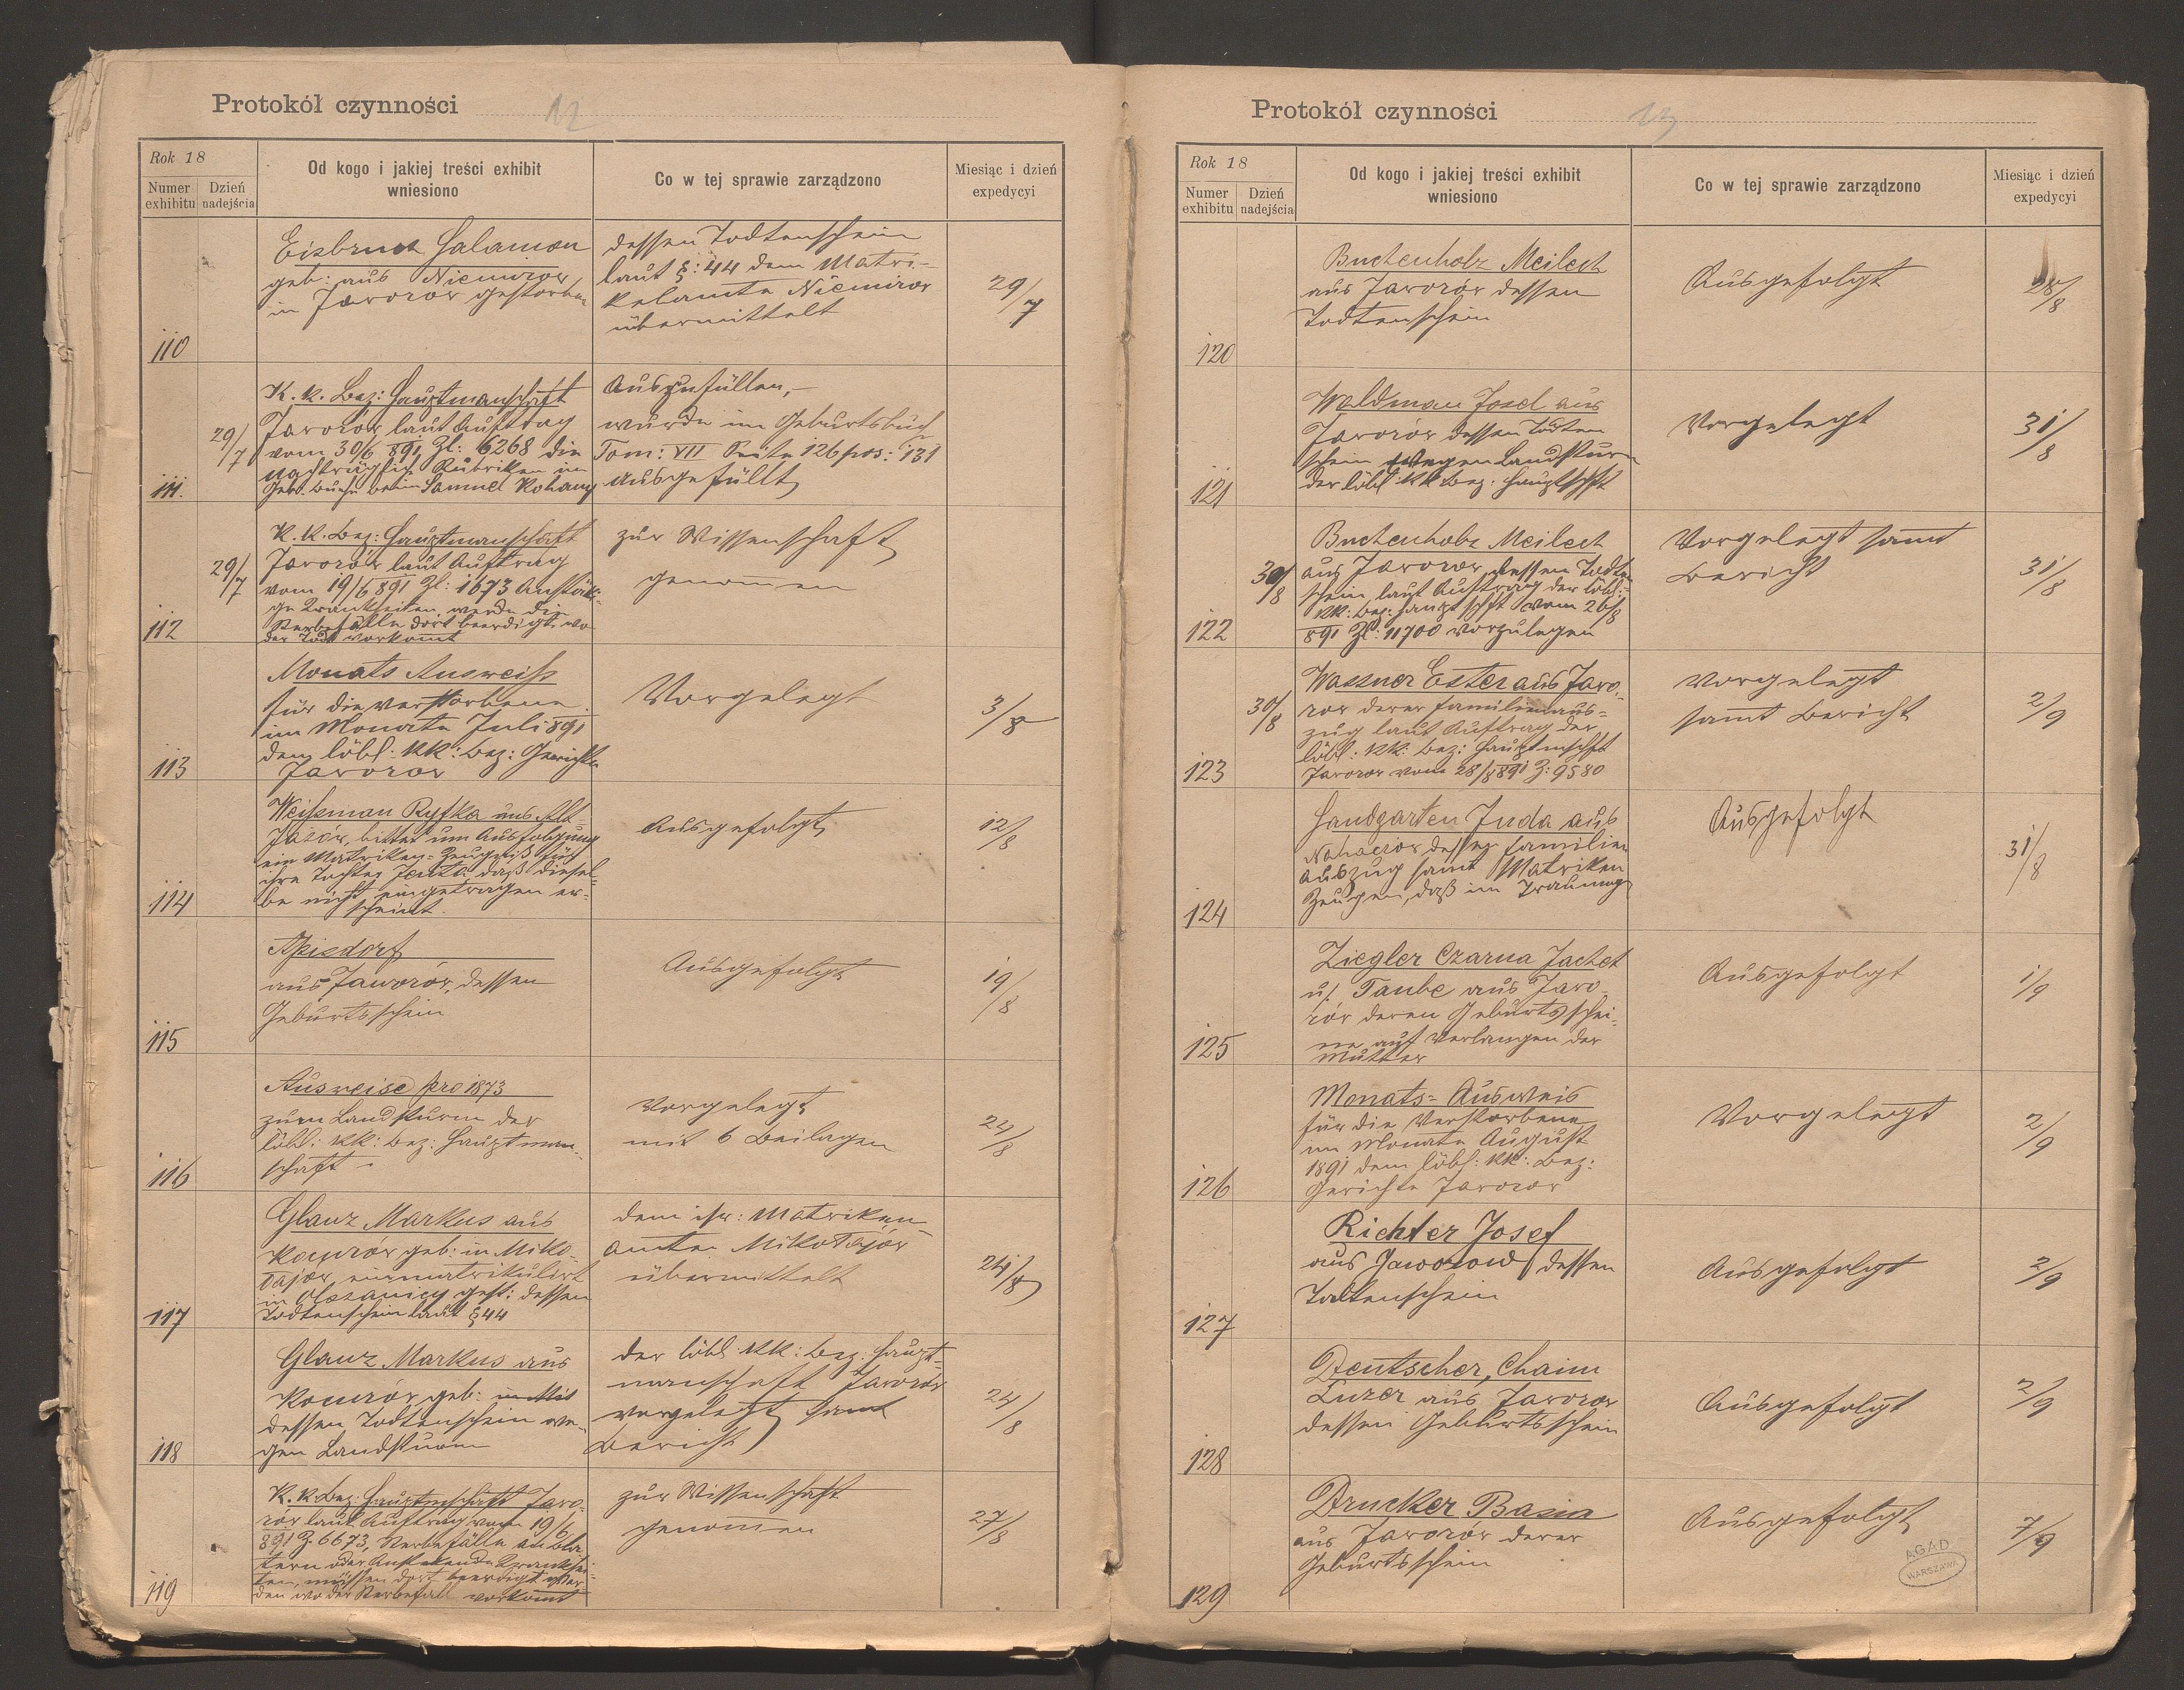 Protokół czynności 12
Rok 18
Numer exhibitu
Dzień nadejścia
Od kogo i jakiej treści exhibit wniesiono
Co w tej sprawie zarządzono
Miesiąc i dzień expedycyi
110
Eisbruch Salamon
geb: aus Niemirow,
in Javorów gestorben
dessen Todtenschein
laut §: 44 dem Matri-
kelamte Niemirow
übermittelt
29/7
111.
29/7
K. k. Bez: Hauptmanschaft
Javorów laut Auftrag
vom 30/6 891 Zl: 6268 die
nachträglich Rubriken im
Geb. buche beim Samuel
Auszufüllen,-
wurde im Geburtsbuch
Tom: VII Seite 126 pos: 131
ausgefüllt
112
29/7
K. k. Bez: Hauptmanschaft
Javorów laut Auftrag
vom 19/6 891 Zl: 1673
ge Krankheiten, werde die
Sterbefälle dort beerdigt wo
der Tod vorkommt
zur Wissenschaft
genommen
113
Monats Ausweiss
für die verstorbene
im Monate Juli 891
dem löbl: KK: Bez: Gerichte
Javorow
Vorgelegt
3/8
114
Weissman Ryfka aus Alt-
Jazów, bittet um Ausfolgung
ein Matriken-Zeugniß für
ihre Tochter daß diesel-
be nicht eingetragen er-
scheint.
Ausgefolgt
12/8
115
aus Jaworów, dessen
Geburtsschein
Ausgefolgt
19/8
116
Ausweise pro 1873
zum Landsturm der
löbl: KK: Bez: Hauptman-
schaft -
Vorgelegt
mit 6 Beilagen
24/8
117
Glanz Markus aus
geb: in Miko-
łajow, immatrikulirt
in gest: dessen
Todtenschein laut §44
dem isr: Matriken-
amte Mikołajów
übermittelt
24/8
118
Glanz Markus aus
geb: in Mik
dessen Todtenschein we-
gen Landsturm
der löbl. KK: Bez: Haupt-
manschaft Javorów
vorgelegt samt
Bericht
24/8
119
K. k. Bez: Hauptmschaft Javo-
rów laut Auftrag vom 19/6
891 Z. 6673, Sterbefälle an Bla-
tern oder Anstekende Krankhei-
ten, müssen dort beerdigt wer-
den wo der Sterbefall vorkommt
zur Wissenschaft
genommen
27/8
Protokół czynności 13
Rok 18
Numer exhibitu
Dzień nadejścia
Od kogo i jakiej treści exhibit wniesiono
Co w tej sprawie zarządzono
Miesiąc i dzień expedycyi
120
Buchenholz Meilech
aus Javorów dessen
Todtenschein
Ausgefolgt
28/8
121
Waldman Josel aus
Javorów dessen Todten
schein wegen Landsturm
der löbl KK Bez: Hauptschft
Vorgelegt
31/8
122
30/8
Buchenholz Meilech
aus Javorow, dessen Todten
schein laut Auftrag der löbl:
KK: Bez: Hauptschft vom 26/8
891 Zl: 11700 vorzulegen
Vorgelegt sammt
Bericht
31/8
123
30/8
Wassner Ester aus Javo-
row derer Familienaus-
zug laut Auftrag der
löbl: KK: Bez: Hauptmschft
Javorow vom 28/8 891 Z: 9580
Vorgelegt
sammt Bericht
2/9
124
Handgarten Juda aus
dessen Familien
auszug samt Matriken
Zeugen, daß im Trauungs
Ausgefolgt
31/8
125
Ziegler Czarna Jachet
u/. Taube aus Javo-
rów deren Geburtsschei-
ne auf Verlangen der
Mutter
Ausgefolgt
1/9
126
Monats-Ausweis
für die Verstorbene
im Monate August
1891 dem löbl: KK: Bez:
Gerichte Javorow
Vorgelegt
2/9
127
Richter Josef
aus Jaworow dessen
Todtenschein
Ausgefolgt
2/9
128
Deutscher, Chaim
Luzer aus Javorow
dessen Geburtsschein
Ausgefolgt
2/9
129
Drucker Basia
aus Javorów derer
Geburtsschein
Ausgefolgt
7/9
AGAD
WARSZAWA